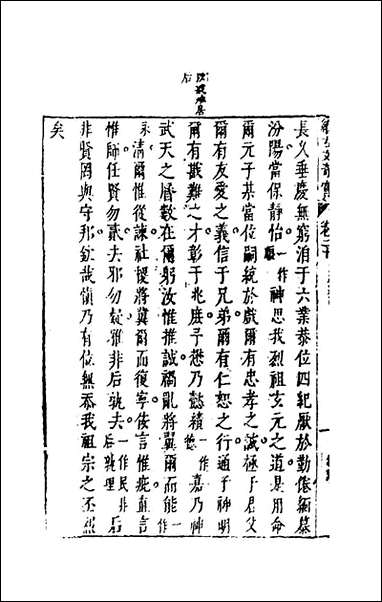 長久垂慶無窮洎于六業恭位四紀厭於勤倦緬慕
汾陽當保靜怡一作頤神思我烈祖玄元之道是用命
爾元子某當位嗣統於戲爾有忠孝之誠極于君父
爾有友愛之義信于兄弟爾有仁恕之行通于神明
爾有戡難之才彰于兆庶予懋乃懿績一作德嘉乃神
武天之曆數在爾躬汝惟推誠禍亂將翼爾而能一作
永清爾惟從諫社稷將冀爾而復寧侫言惟疵直言
惟師任賢勿貳去邪勿疑雅非后
非賢罔與守邦欽哉慎乃有位無忝我祖宗之丕烈
矣